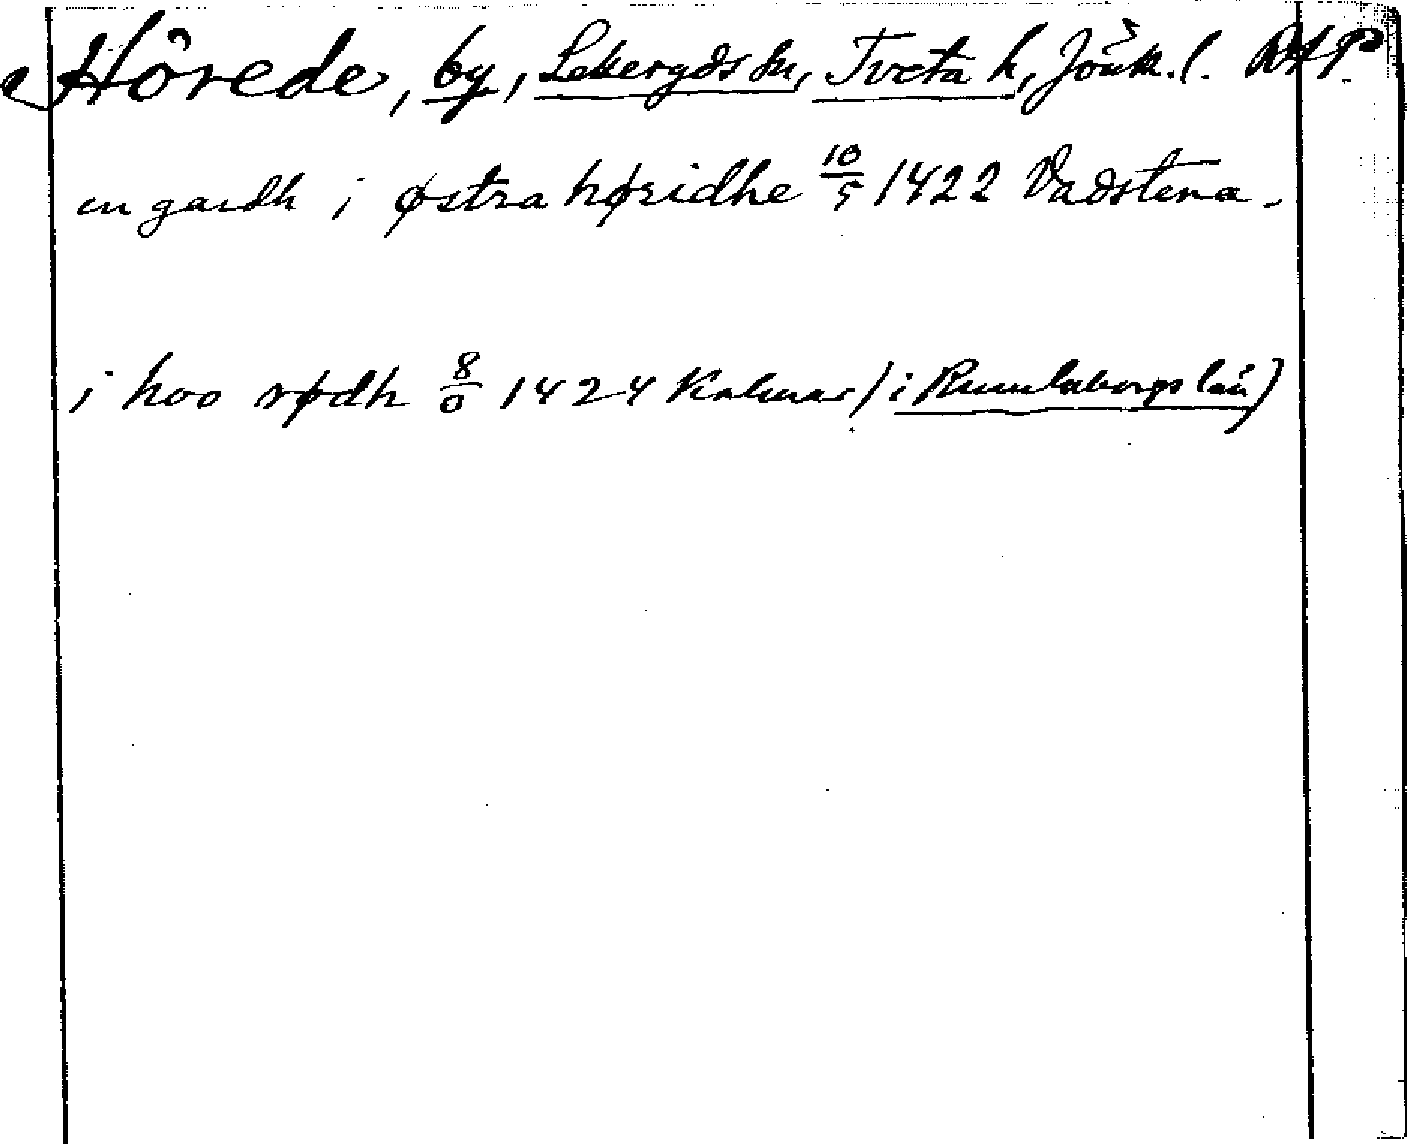 Hörede, by, Lekeryds sn, Tveta h, Jönk. l. RAP.
en gardh i østra høridhe 10/5 1422 Vadstena.
i hoo rødh 8/0 1424 Kalmar (i Rumlaborgs län)